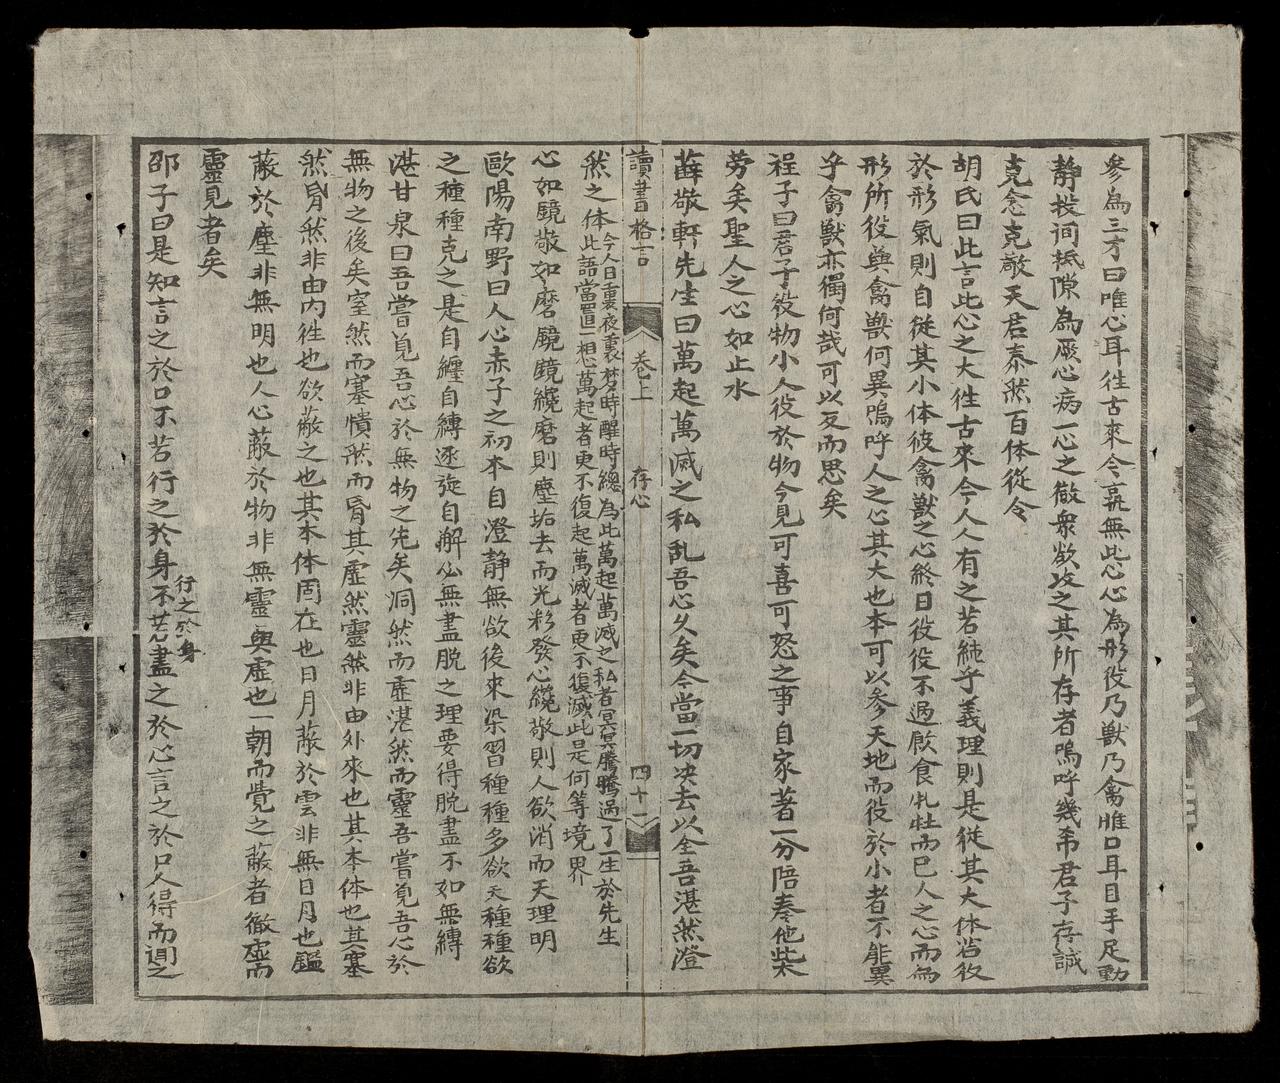 參為三才曰唯心耳徃古來今孰無此心心為形役乃獸乃禽惟口耳目手足動
靜投间抵隙為厥心病一心之微衆欲攻之其所存者嗚呼幾希君子存誠
克念克敬天君泰然百体從令
胡氏曰此言此心之大徃古來今人人有之若純乎義理則是從其大体若役
於形氣則自從其小体彼禽獸之心終日役役不過飲食牝牡而已人之心而為
形所役與禽獸何異嗚呼人之心其大也本可以參天地而役於小者不能異
乎禽獸亦獨何哉可以反而思矣
程子曰君子役物小人役於物今見可喜可怒之事自家著一分陪奉他柴
劳矣聖人之心如止水
薛敬軒先生曰萬起萬滅之私乱吾心久矣今當一切决去以全吾湛然澄
讀書格言 卷上 存心 四十一
然之体今人日裏夜裏梦時醒時總為此萬起萬滅之私者冥冥騰騰過了一生於先生
此語當置一想萬起者更不復起萬滅者更不復滅此是何等境界
心如鏡敬如磨鏡鏡纔磨則塵垢去而光彩發心纔敬則人欲消而天理明
歐陽南野曰人心赤子之初本自澄靜無欲後來染習種種多欲夭種種欲
之種種克之是自纏自縛逐旋自解必無盡脱之理要得脱盡不如無縛
湛甘泉曰吾嘗覓吾心於無物之先矣洞然而虚湛然而靈吾嘗覓吾心於
無物之後矣窒然而塞憒然而昏其虚然靈然非由外來也其本体也其塞
然昏然非由内徃也欲蔽之也其本体固在也日月蔽於雲非無日月也鑑
蔽於塵非無明也人心蔽於物非無靈與虚也一朝而覺之蔽者徹虚而
靈見者矣
邵子曰是知言之於口不若行之於身不若盡之於心言之於口人得而聞之
行之於身